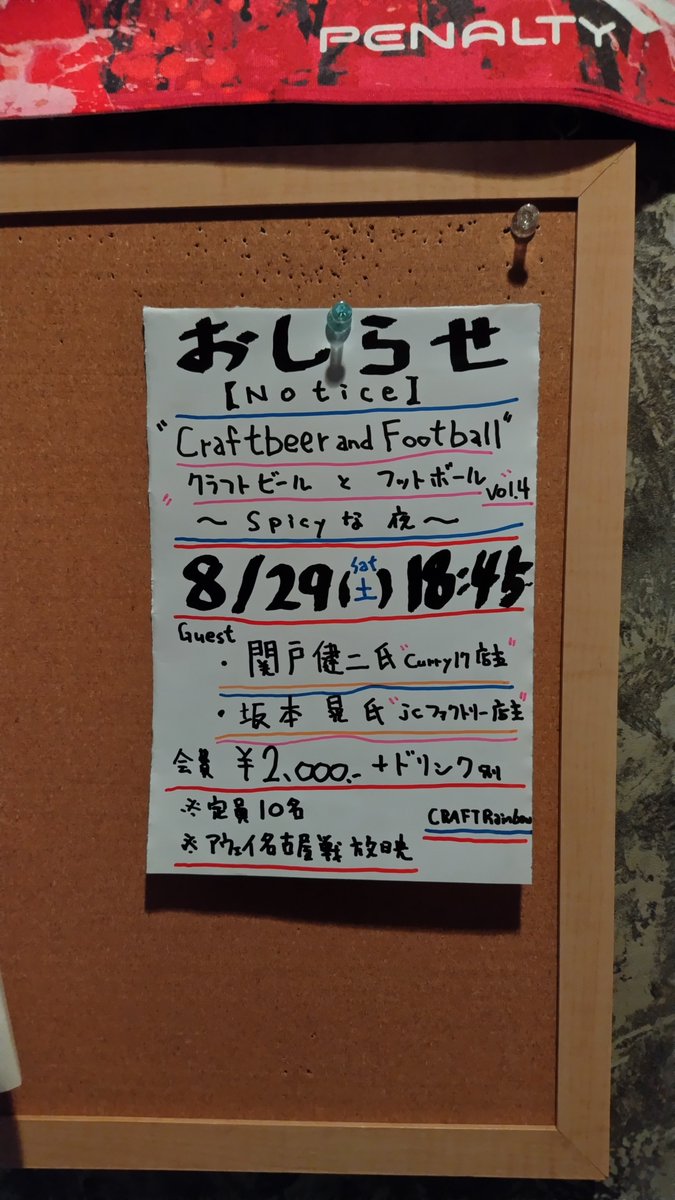 PENALTY
おしらせ
【Notice】
"Craftbeer and Football"
"クラフトビール と フットボール" vol.4
～ Spicyな夜～
8/29(土) Sat 18:45
Guest
・関戸健二氏"Curry17店主"
・坂本 晃氏"jcファクトリー店主"
会費 ¥2,000.- +ドリンク別
※定員10名
CRAFTRainbow
※アウェイ名古屋戦放映